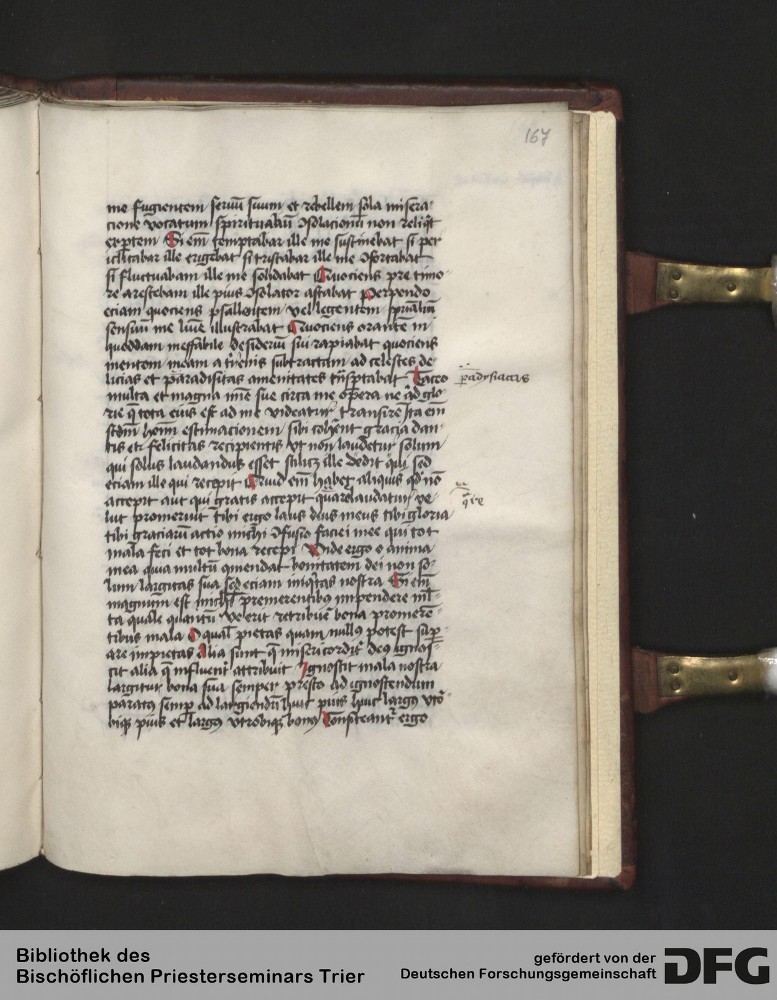 167
me fugientem seruū suum et rebellem sola misera-
cione vocatum spiritualiū ɔsolacionū non reliqͥt
expertem Si em̄ temptabar ille me sustinebat si per
iclitabar ille erigebat si tristabar ille me ɔfortabat
si fluctuabam ille me solidabat Quociens pre timo-
re arescebam ille pius ɔsolator astabat Perpendo
eciam quociens psallentem vel legentem spūaliū
sensuū me lucie illustrabat Quociens orantē in
quoddam ineffabile desideriū sui rapiabat quociens
mentem meam a tr̄renis subtractam ad celestes de-
licias et paradisitas amenitates tn̄sportabat Taceo
paradysiacas
multa et magna mīe sue circa me opera ne qͥd glo-
rie q̄ tota eius est ad me videatur transire Ita em̄
scd̄m hoīm estimacionem sibi coherent gracia dan-
tis et felicitas recipientis vt non laudetur solum
qui solus laudandus esset scilicꝫ ille dedit qui sed
eciam ille qui recepit Quid em̄ habet aliquis qd̓ nō
accepit aut qui gratis accepit quare laudatur ve-
qͣre
lut promeruit Tibi ergo laus deus meus tibi gloria
tibi graciarū actio michi ɔfusio faciei mee qui tot
mala feci et tot bona recepi Vnde ergo o anima
mea quia multū ɔmendat bonitatem dei non so-
lum largitas sua sed eciam iniqͥtas nostra Si em̄
magnum est michi premerentibus inpendere ml̄-
ta quale quantū ve erit retribuē bona promerē-
tibus mala O qual̄ pietas quam nullꝰ potest supꝑ-
are impietas Alia sunt q̄ misericordit᷑ deꝰ ignos-
cit alia q̄ influent᷑ attribuit Ignoscit mala nostra
largitur bona sua semper presto ad ignoscendum
paratꝰ semꝑ ad largiendū huic pius huic largꝰ vtro-
biqꝫ pius et largꝰ vtrobiqꝫ bonꝰ Confiteant᷑ ergo
Bibliothek des
Bischöflichen Priesterseminars Trier
gefördert von der
Deutschen Forschungsgemeinschaft
DFG